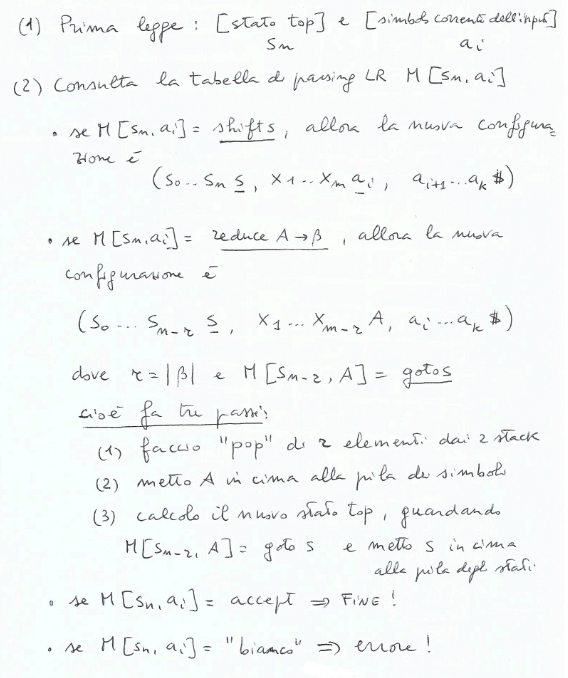 (1) Prima legge : [stato top] e [simbolo corrente dell'input]
Sn ai
(2) Consulta la tabella di parsing LR M[Sn, ai]
• se M[Sn, ai] = shift s, allora la nuova configura
zione è
(S0 .. Sn s, X1 .. Xm ai, ai+1 ... ak $)
• se M[Sn, ai] = reduce A → β, allora la nuova
configurazione è
(S0 ... Sm-r s, X1 ... Xm-r A, ai ... ak $)
dove r = |β| e M[Sm-r, A] = goto s
cioè fa tre passi:
(1) faccio "pop" di r elementi dai 2 stack
(2) metto A in cima alla pila dei simboli
(3) calcolo il nuovo stato top, guardando
M[Sm-r, A] = goto s e metto s in cima
alla pila degli stati
• se M[Sn, ai] = accept ⇒ FINE !
• se M[Sn, ai] = "bianco" ⇒ errore !